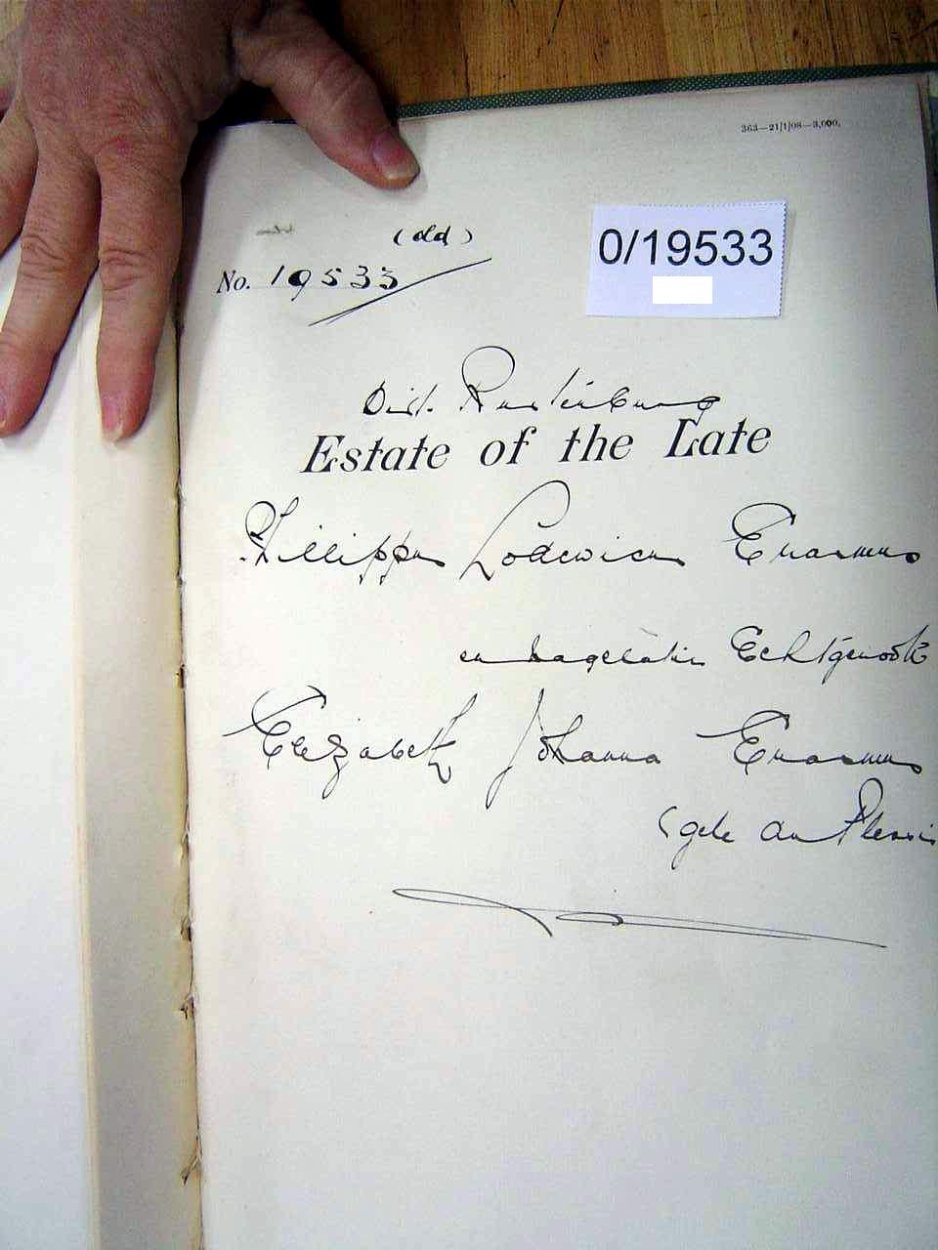 363—21/1/08—3,000.
(old)
No. 19533
0/19533
Dist. Rustenburg
Estate of the Late
Phillippus Lodewicus Erasmus
en nagelaten Echtgenoote
Elizabeth Johanna Erasmus
(geb du Plessis